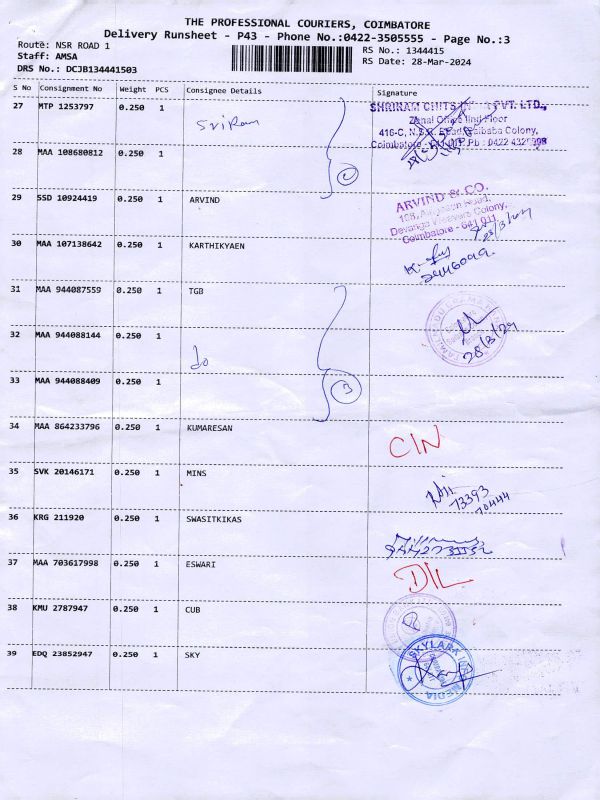 THE PROFESSIONAL COURIERS, COIMBATORE
Delivery Runsheet - P43 - Phone No.:0422-3505555 - Page No.:3
Route: NSR ROAD 1
RS No.: 1344415
Staff: AMSA
RS Date: 28-Mar-2024
DRS No.: DCJB134441503
S No Consignment No Weight PCS Consignee Details Signature
27 MTP 1253797 0.250 1
Sriram
SHRIRAM CHITS PVT. LTD.,
Zonal Office IInd Floor
416-C, N.S.R. Road, Saibaba Colony,
Coimbatore
28 MAA 108680812 0.250 1
2
29 SSD 10924419 0.250 1 ARVIND
ARVIND & CO.
Devanga Weavers Colony,
Coimbatore - 641 011.
30 MAA 107138642 0.250 1 KARTHIKYAEN
31 MAA 944087559 0.250 1 TGB
32 MAA 944088144 0.250 1
do
28/3/24
33 MAA 944088409 0.250 1
3
34 MAA 864233796 0.250 1 KUMARESAN
CIN
35 SVK 20146171 0.250 1 MINS
73393
70444
36 KRG 211920 0.250 1 SWASITKIKAS
37 MAA 703617998 0.250 1 ESWARI
DIL
38 KMU 2787947 0.250 1 CUB
39 EDQ 23852947 0.250 1 SKY
SKYLARK
MEDIA